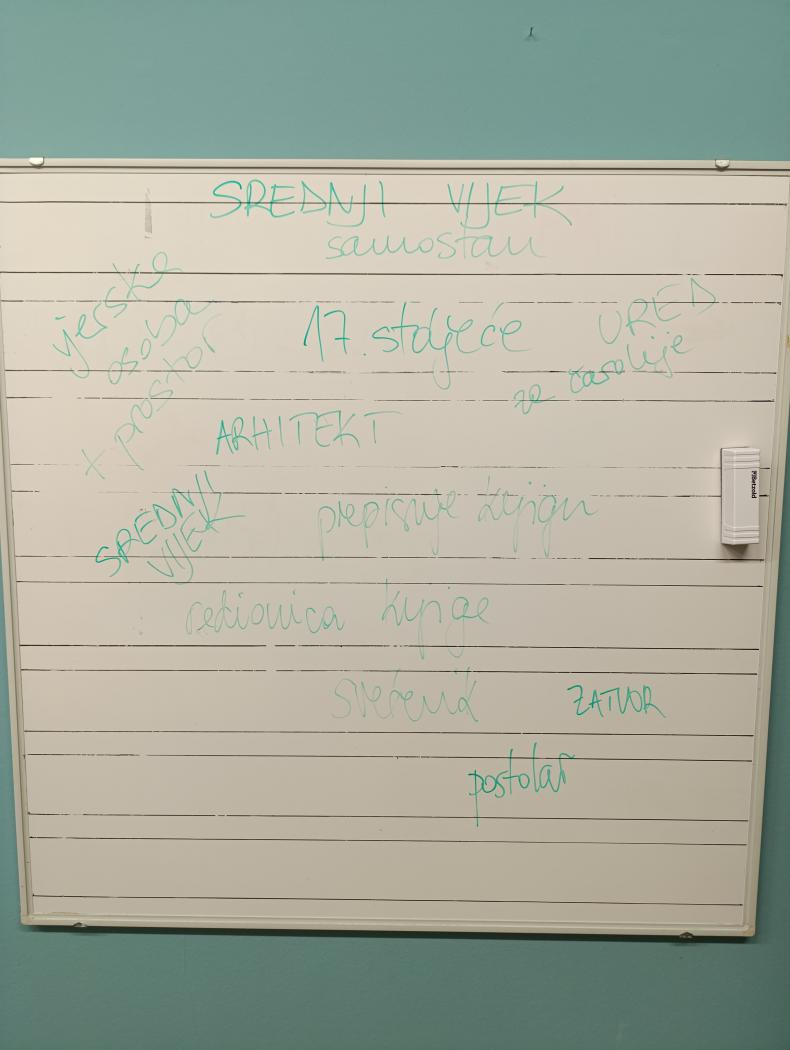 SREDNJI VIJEK
samostan
vjerska
osoba
+ prostor
17. stoljeće
URED
za čarolije
ARHITEKT
SREDNJI
VIJEK
prepisuje knjigu
redionica knjige
svećenik
ZATVOR
postolar
Betzold